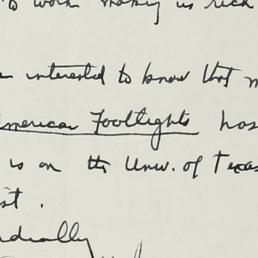 to work making us rich
interested to know that m
American Footlights has
is on the Univ. of Texas
st.
dially